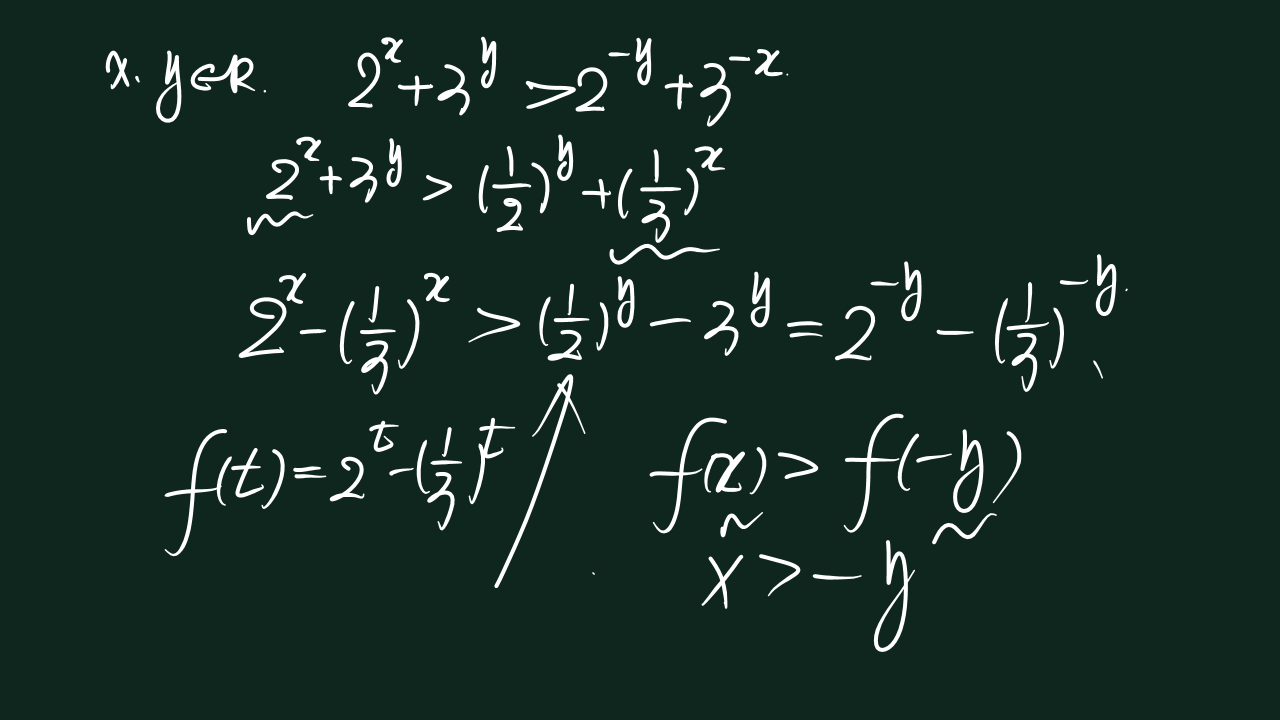 x. y∈R. 2^x+3^y >2^{-y}+3^{-x}.
2^x+3^y > (1/2)^y+(1/3)^x
2^x-(1/3)^x > (1/2)^y-3^y = 2^{-y}-(1/3)^{-y}.
f(t)=2^t-(1/3)^t f(x)> f(-y)
x>-y